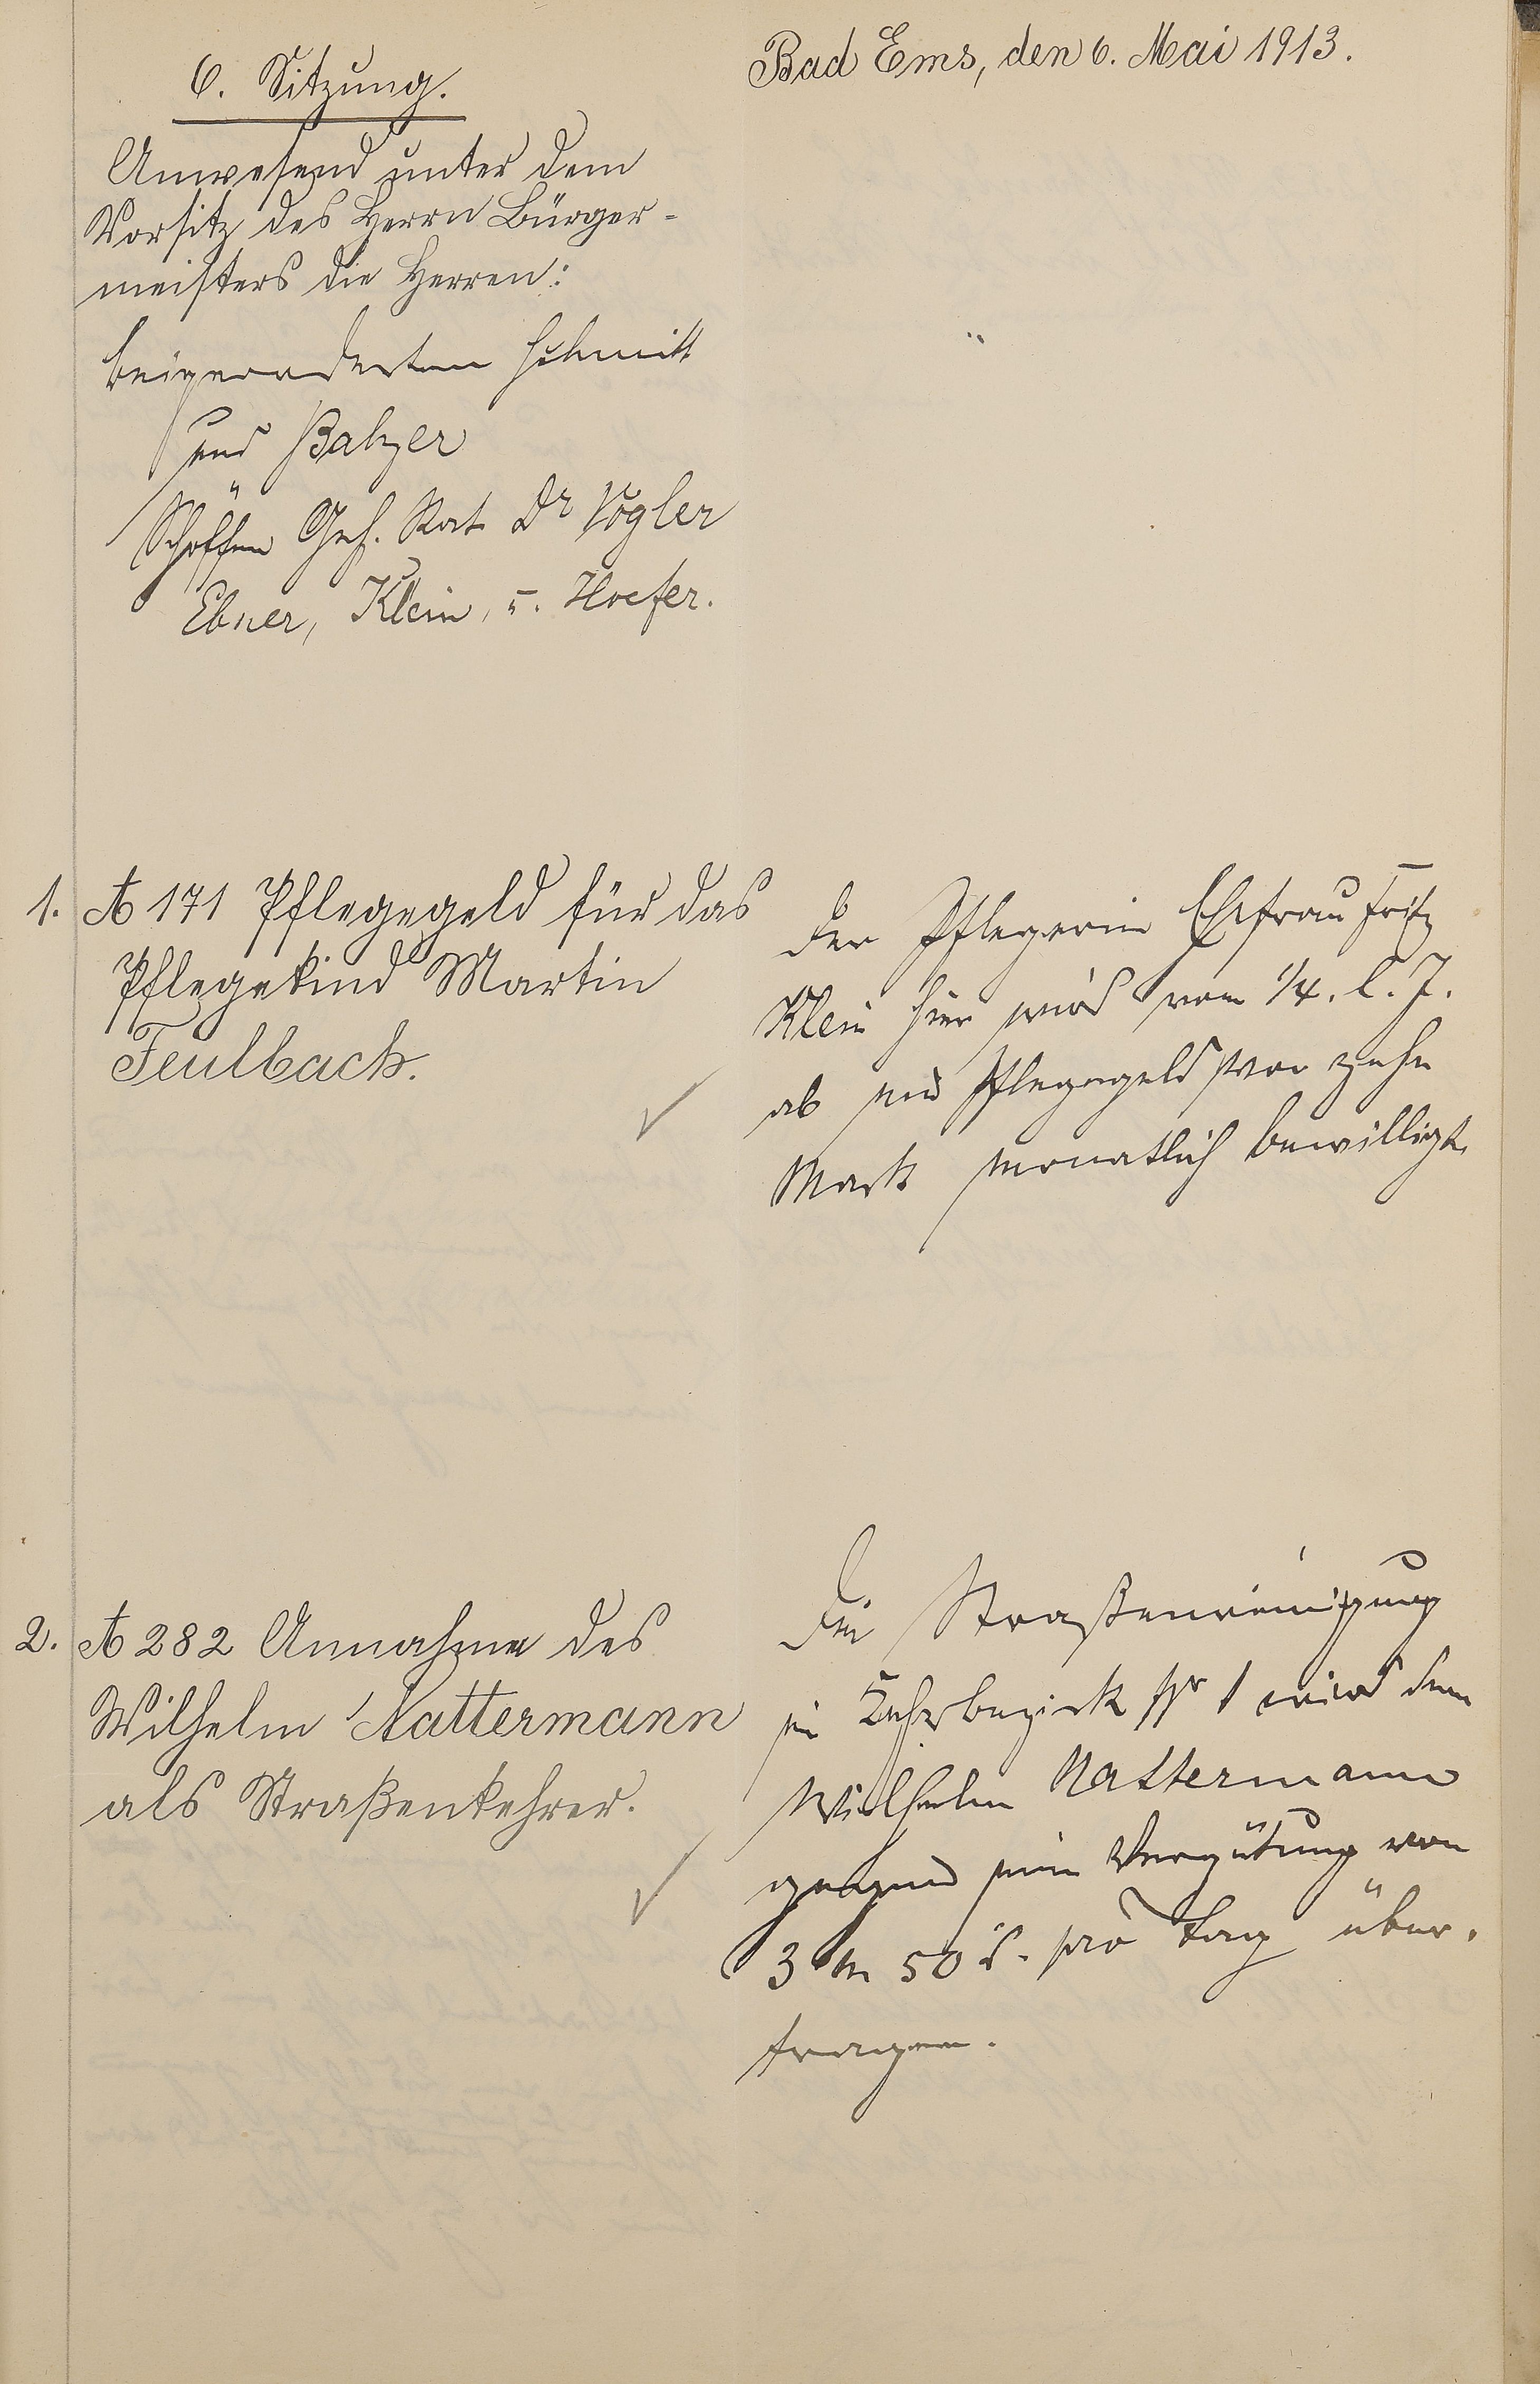 Bad Ems, den 6. Mai 1913.
6. Sitzung.
Anwesend unter dem
Vorsitz des Herrn Bürger-
meisters die Herren:
Beigeordneten Schmitt
und Balzer
Schöffen Geh. Rat Dr Vogler
Ebner, Klein, u. Hoefer.
1. A 171 Pflegegeld für das
Pflegekind Martin
Feulbach.
Der Pflegerin Ehefrau Fritz
Klein hier wird vom 1/4. l. J.
ab ein Pflegegeld von zehn
Mark monatlich bewilligt.
2. A 282 Annahme des
Wilhelm Nattermann
als Straßenkehrer.
Die Straßenreinigung
im Kehrbezirk Nr 1 wird dem
Wilhelm Nattermann
gegen eine Vergütung von
3 M 50 d. pro Tag über-
tragen.